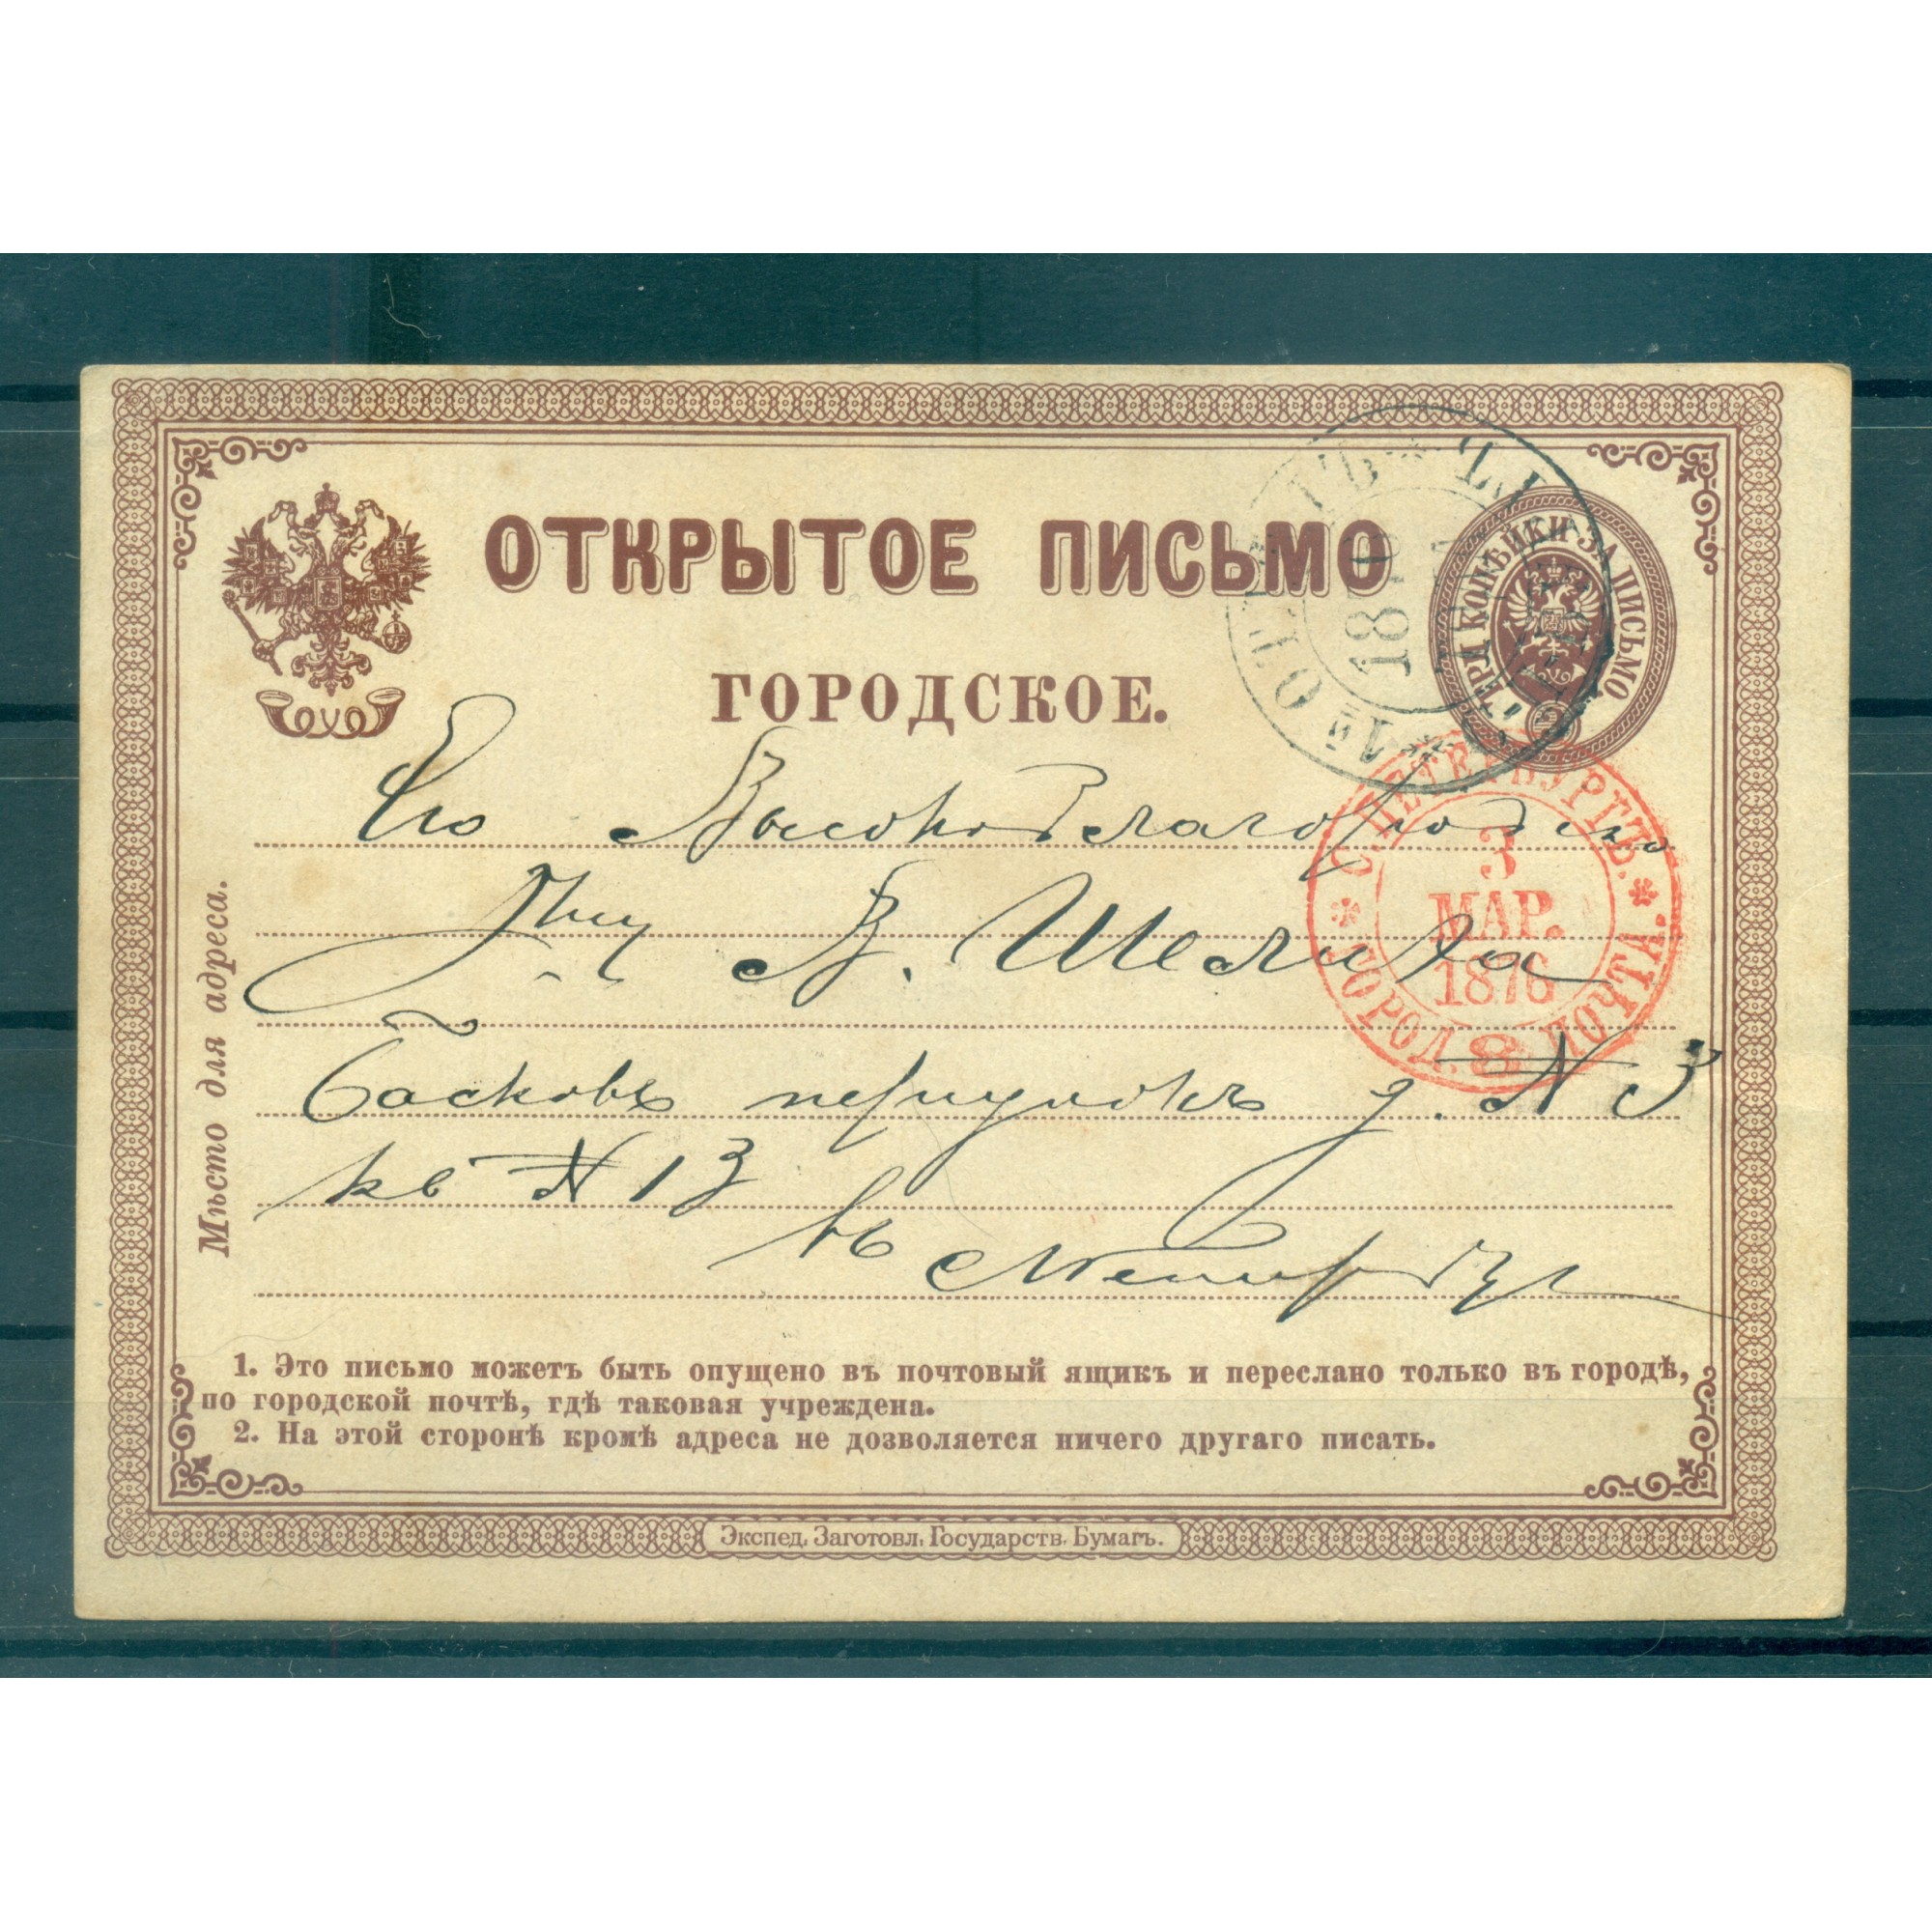 ОТКРЫТОЕ ПИСЬМО
ГОРОДСКОЕ.
ТРИ КОПѢЙКИ ЗА ПИСЬМО
187
С.ПЕТЕРБУРГЪ.
3
МАР.
1876
ГОРОД. 8 ПОЧТА.
Его Высокоблагородію
В. Шелиха
Басковъ переулокъ д. N 3
кв N 13
въ С Петербург
Мѣсто для адреса.
1. Это письмо можетъ быть опущено въ почтовый ящикъ и переслано только въ городѣ,
по городской почтѣ, гдѣ таковая учреждена.
2. На этой сторонѣ кромѣ адреса не дозволяется ничего другаго писать.
Экспед. Заготовл. Государств. Бумагъ.